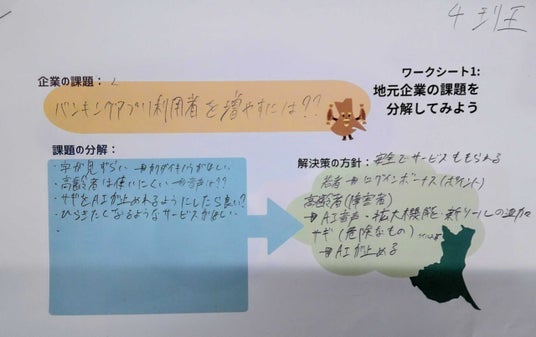 4班
ワークシート1:
地元企業の課題を
分解してみよう
企業の課題：
バンキングアプリ利用者を増やすには??
課題の分解：
・字が見ずらい→カクダイキノウがほしい
・高齢者は使いにくい→音声は??
・サギをAIが止めれるようにしたら良い?
・ひらきたくなるようなサービスがほしい
・
解決策の方針：安全でサービスももらえる
若者→ログインボーナス(ポイント)
高齢者(障害者)
→AI音声・拡大機能・新ツールの追加
サギ(危険なもの)
→AIが止める